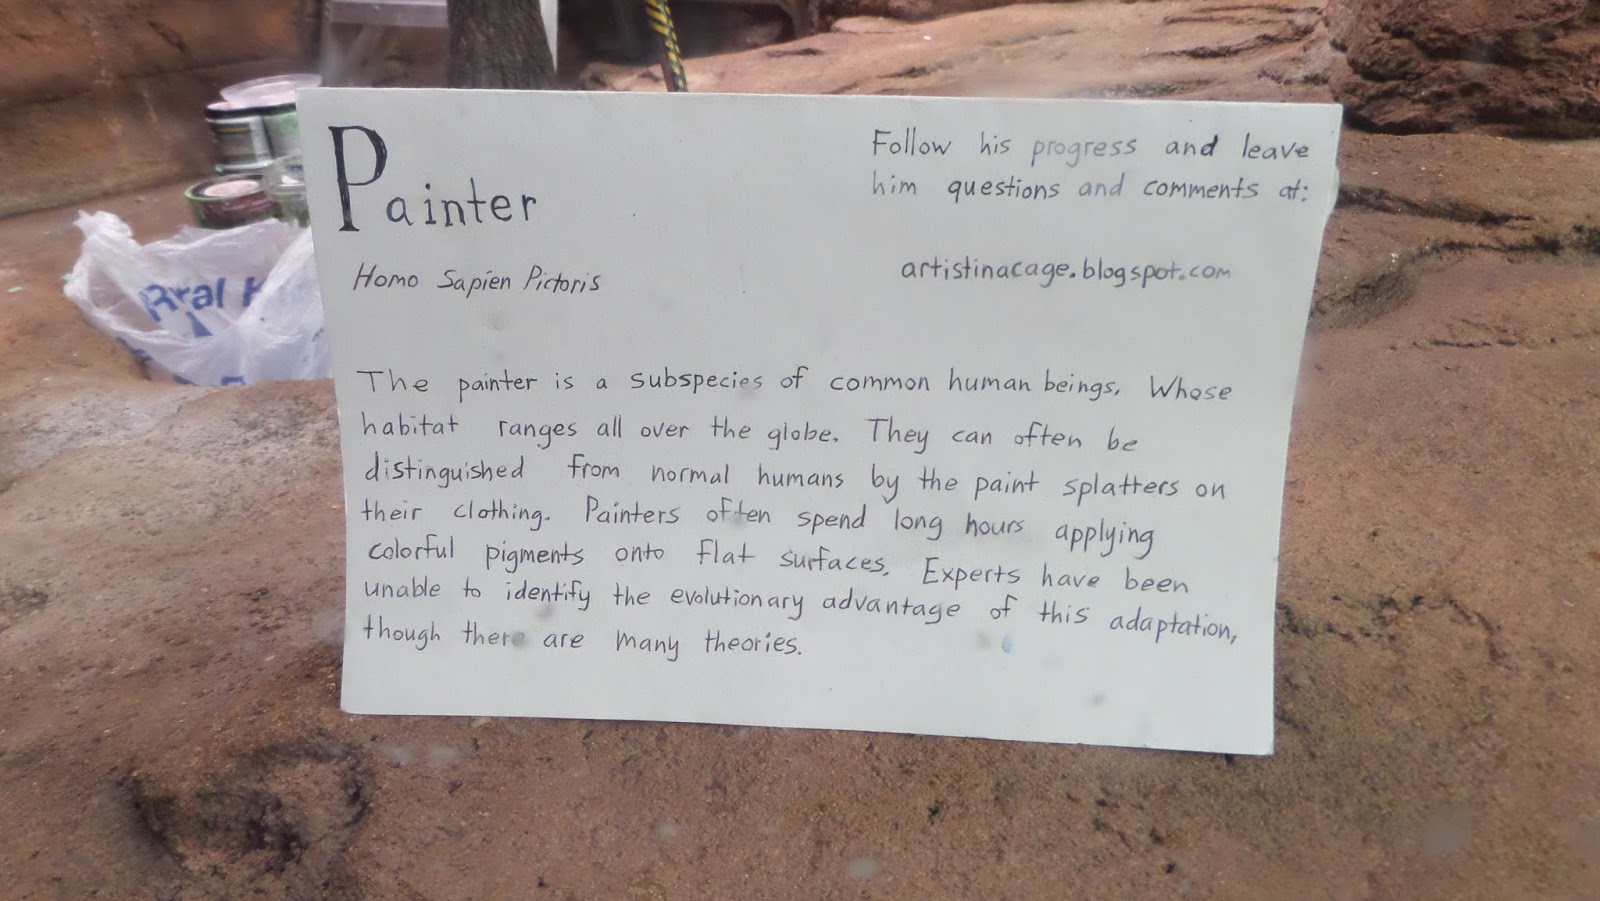 Painter
Homo Sapien Pictoris
Follow his progress and leave
him questions and comments at:
artistinacage.blogspot.com
The painter is a subspecies of common human beings. Whose
habitat ranges all over the globe. They can often be
distinguished from normal humans by the paint splatters on
their clothing. Painters often spend long hours applying
colorful pigments onto flat surfaces. Experts have been
unable to identify the evolutionary advantage of this adaptation,
though there are many theories.